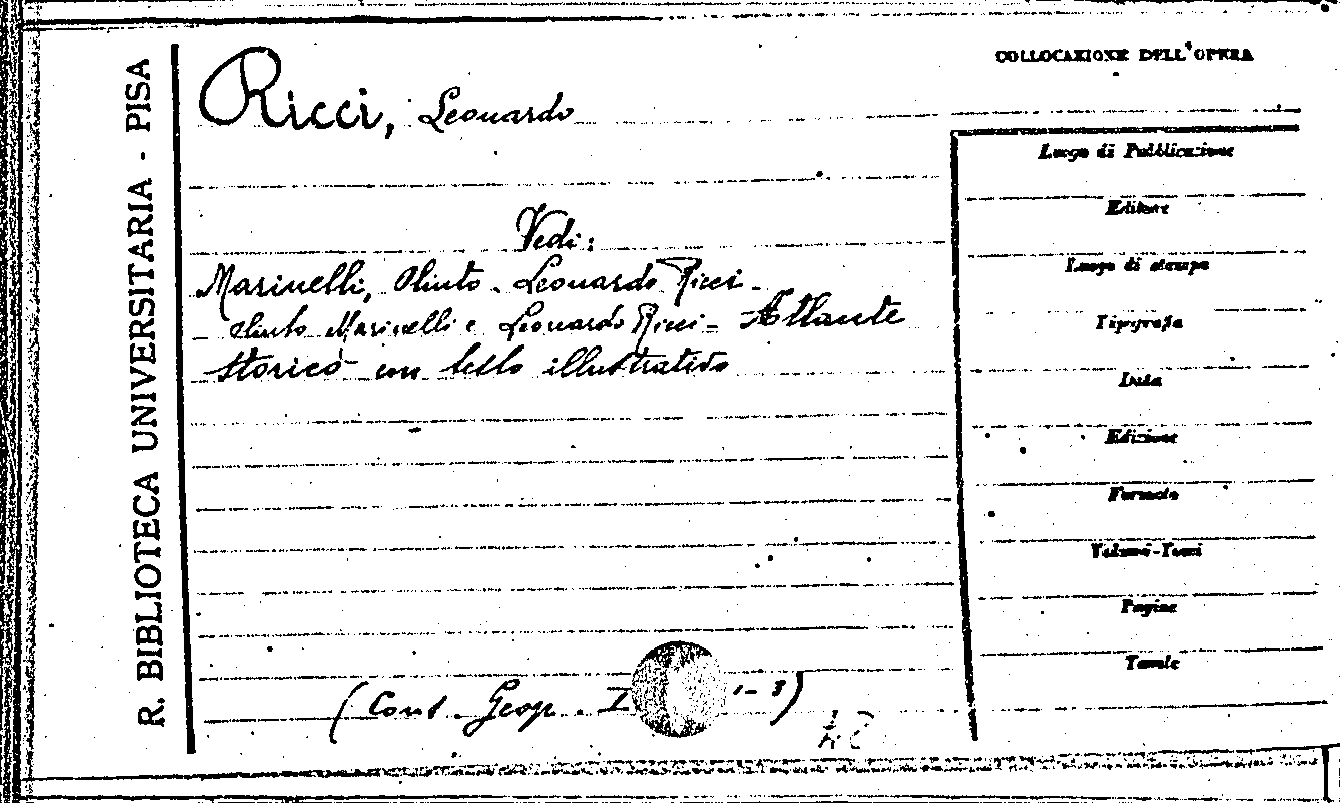 R. BIBLIOTECA UNIVERSITARIA - PISA
Ricci, Leonardo
Vedi:
Marinelli, Olinto - Leonardo Ricci -
Olinto Marinelli e Leonardo Ricci - Atlante
storico con testo illustrativo
(Cont. Geogr. I 1-3)
COLLOCAZIONE DELL'OPERA
Luogo di Pubblicazione
Editore
Luogo di stampa
Tipografia
Data
Edizione
Formato
Volumi-Tomi
Pagine
Tavole